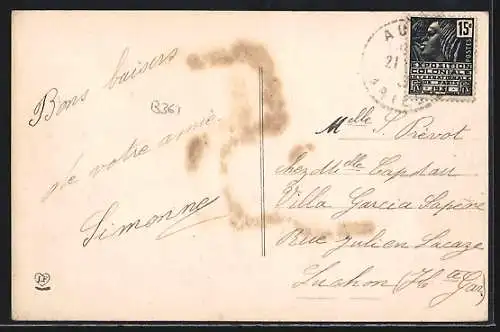 Bons baisers
de votre amie
Simonne
B361
J.F
15c
POSTES
EXPOSITION
COLONIALE
INTERNATIONALE
DE PARIS
1931
21
Melle S. Prévot
chez Mlle Capdau
Villa Garcia Sapène
Rue Julien Sacaze
Luchon (Hte Gar)